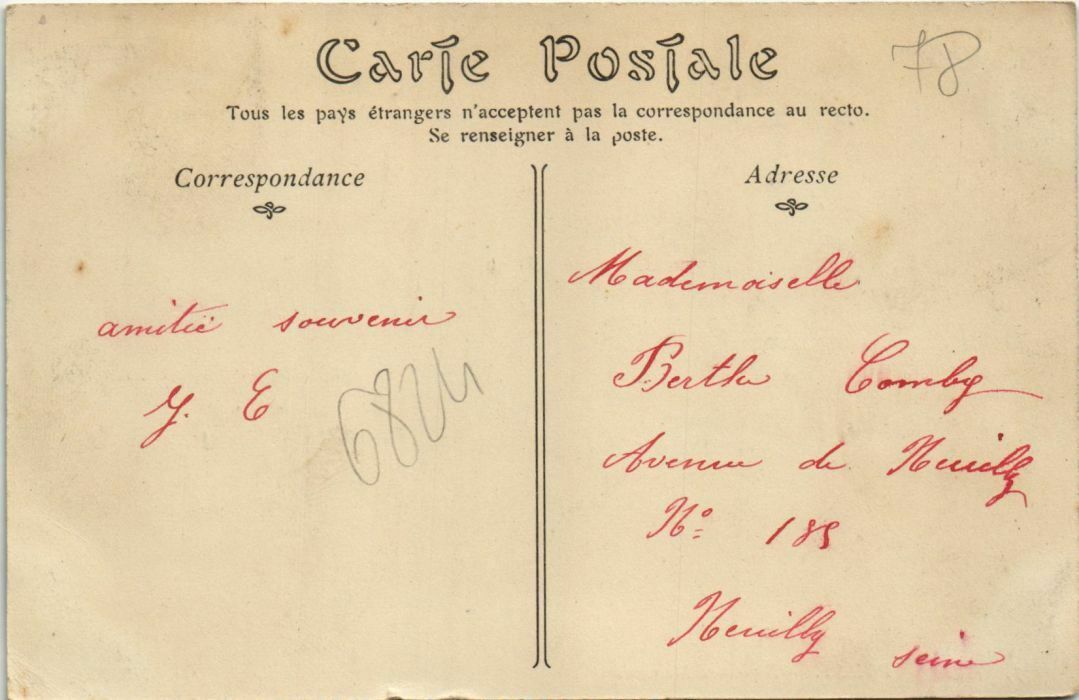 Carte Postale
78
Tous les pays étrangers n'acceptent pas la correspondance au recto.
Se renseigner à la poste.
Correspondance
amitié souvenir
Y. E
6824
Adresse
Mademoiselle
Berthe Comby
Avenue de Neuilly
N° 185
Neuilly
seine